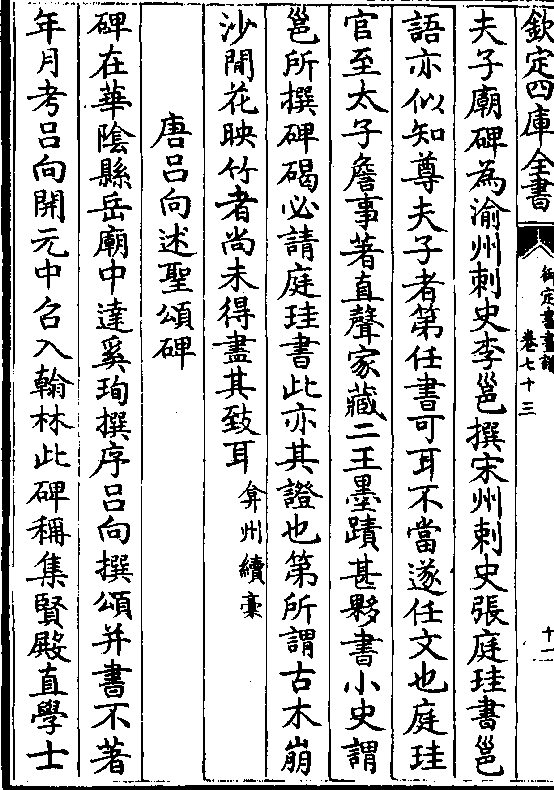 欽定四庫全書
御定書畫譜
卷七十三
十二
夫子廟碑為渝州刺史李邕撰宋州刺史張庭珪書邕
語亦似知尊夫子者第任書可耳不當遂任文也庭珪
官至太子詹事著直聲家藏二王墨蹟甚夥書小史謂
邕所撰碑碣必請庭珪書此亦其證也第所謂古木崩
沙閒花映竹者尚未得盡其致耳弇州續稾
唐呂向述聖頌碑
碑在華陰縣岳廟中達奚珣撰序呂向撰頌并書不著
年月考呂向開元中召入翰林此碑稱集賢殿直學士